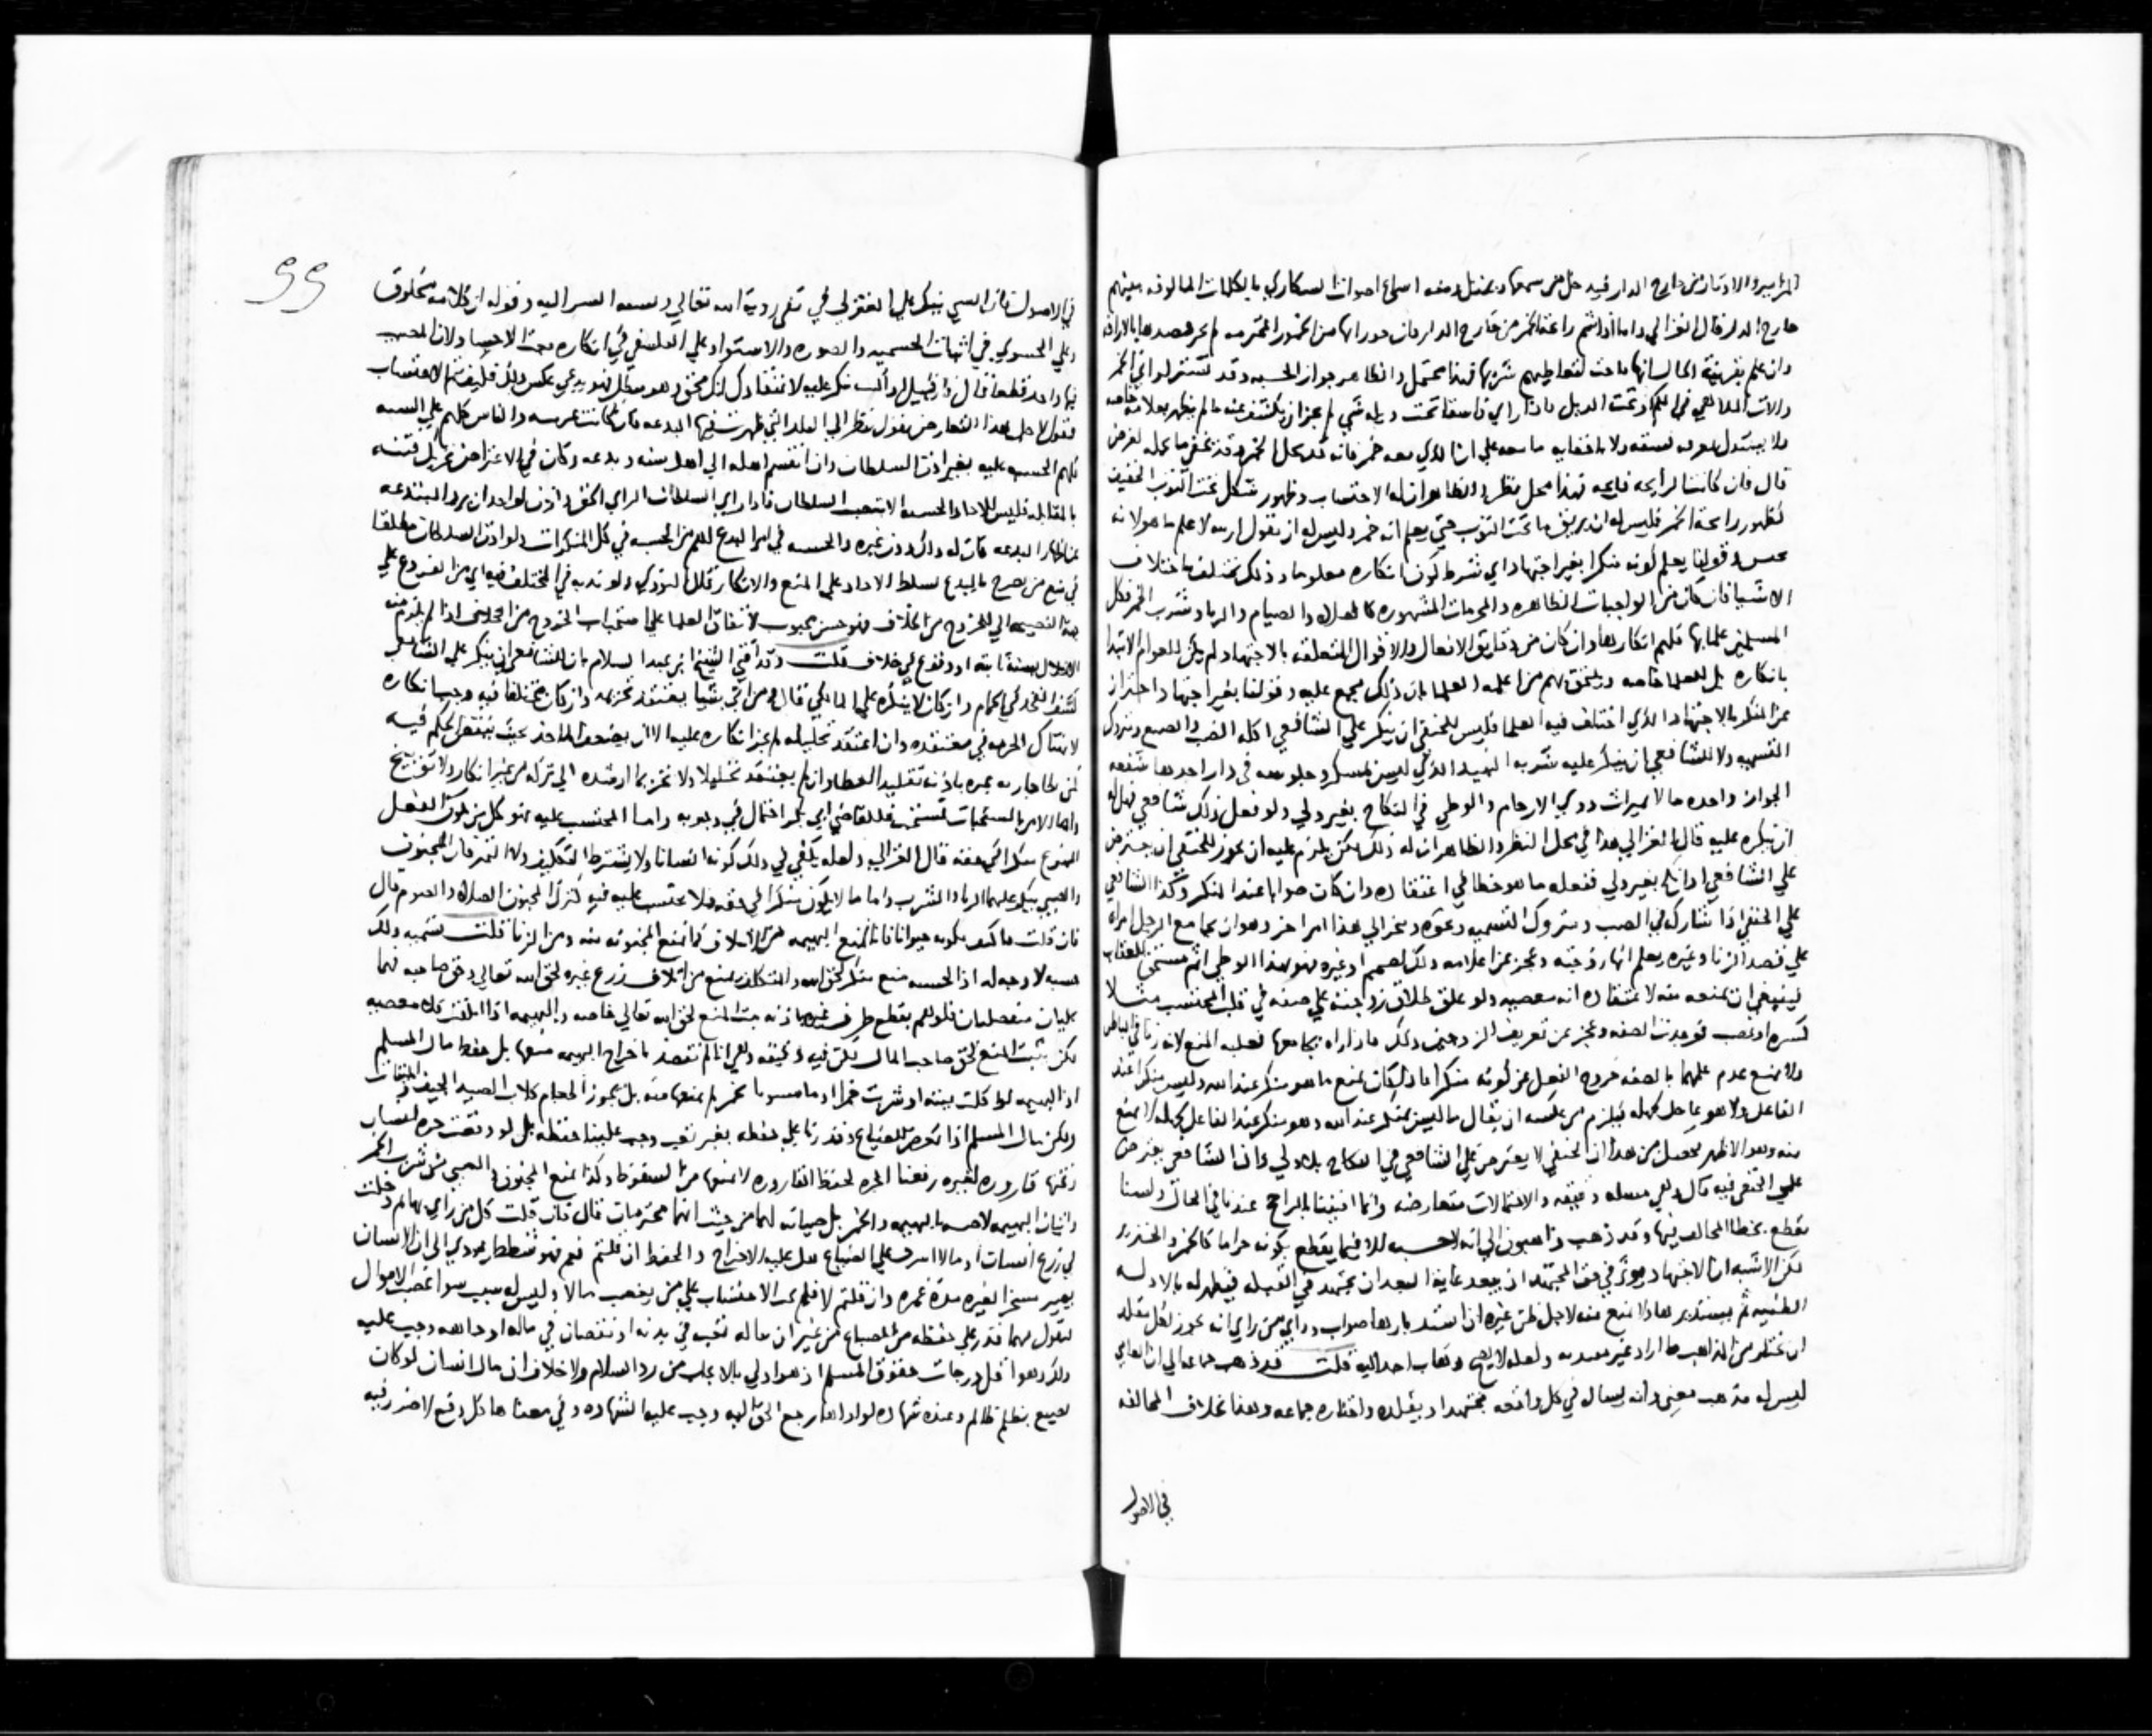 المزامير والاوتار من خارج الدار فيدخل من سمعها وبمثل ومنه اسماع اصوات السكاري بالكلمات المالوفه بينهم
خارج الدار قال الغزالي واما اذا شم رائحة الخمر من خارج الدار فان
وان علم بقرينة الحال انها فاحت لتعاطيهم شربها فهذا محتمل والظاهر جواز الحسبه وقد تستتر اواني الخمر
والات الملاهي في الكم وتحت الذيل فاذا راي فاسقا تحت ذيله شي لم يجز ان يكشف عنه ما لم يظهر بعلامة خاصه
ولا يستدل بفسقه ولا باخفايه ما معه علي ان الذي معه خمر فانه قد يحمل الخل وقد يخفي ما يحمله لغرض
قال فان كانت الرايحه فايحه فهذا محل نظر والظاهر ان له الاحتساب وظهور شكل تحت الثوب الخفيف
كظهور رايحة الخمر فليس له ان يريق ما تحت الثوب حتي يعلم انه خمر وليس له ان يقول اريد لاعلم ما هو لانه
تجسس وقولنا يعلم كونه منكرا بغير اجتهاد اي شرط كون انكاره معلوما وذلك يختلف باختلاف
الاشيا فان كان من الواجبات الظاهره والمحرمات المشهوره كالصلاه والصيام والزنا وشرب الخمر فكل
المسلمين علما بها فلهم انكارها وان كان من دقايق الافعال والاقوال المتعلقه بالاجتهاد لم يكن للعوام الابتدا
بانكاره بل للعلما خاصه ويلتحق بهم من اعلمه العلما بان ذلك مجمع عليه وقولنا بغير اجتهاد احتراز
عن المنكر بالاجتهاد الذي اختلف فيه العلما فليس للحنفي ان ينكر علي الشافعي اكله الضب والضبع ومتروك
التسميه ولا للشافعي ان ينكر عليه شربه النبيذ الذي ليس بمسكر وجلوسه في دار اخذها بشفعه
الجوار واخذه مالا بميراث ذوي الارحام والوطي في النكاح بغير ولي ولو فعل ذلك شافعي فهل له
ان ينكره عليه قال الغزالي هذا في محل النظر والظاهر ان له ذلك لكن يلزم عليه ان يجوز للحنفي ان يعترض
علي الشافعي اذا نكح بغير ولي ففعله ما هو خطا في اعتقاده وان كان صوابا عند المنكر وكذا الشافعي
علي الحنفي اذا شاركه في الضب ومتروك التسميه ونحوه وينجر الي هذا امر اخر وهو ان يجامع الرجل امراه
علي قصد الزنا وغيره يعلم انها زوجته وعجز عن اعلامه وذلك لصمم او غيره فهو بهذا الوطي اثم مستحق للعقاب
فينبغي ان يمنعه منه لاعتقاده انه معصيه ولو علق طلاق زوجته علي صفه في قلب المحتسب مثلا
كسره او غضب فوجدت الصفه وعجز عن تعريف الزوجين ذلك فاذا راه يجامعها فعليه المنع لانه زنا في الباطن
ولا يمنع عدم علمهما بالصفه خروج الفعل عن كونه منكرا فاذا كان يمنع ما هو منكر عند الله وليس منكرا عند
الفاعل ولا هو عاص لجهله فيلزم من عكسه ان يقال ما ليس بمنكر عند الله وهو منكر عند الفاعل لجهله لا يمنع
منه وهو الاظهر تحصل من هذا ان الحنفي لا يعترض علي الشافعي في النكاح بلا ولي وان الشافعي يعترض
علي الحنفي فيه قال وهي مسايل دقيقه والاحتمالات متعارضه وانما افتينا بالراجح عندنا في الحال ولسنا
نقطع بخطا المخالف فيها وقد ذهب ذاهبون الي انه لا حسبه الا فيما يقطع بكونه حراما كالخمر والخنزير
لكن الاشبه ان الاجتهاد يوثر في حق المجتهد اذ يبعد غاية البعد ان يجتهد في القبله فيظهر له بالادله
الظنيه ثم يستدبرها ولا يمنع منه لاجل ظن غيره ان استدبارها صواب وراي من راي انه يجوز لكل مقلد
ان يختار من المذاهب ما اراد غير معتد به ولعله لا يصح وذهاب احد اليه قلت قد ذهب جماعه الي ان العامي
ليس له مذهب معين وانه يسال في كل واقعه مجتهدا ويقلده واختاره جماعه وهذا بخلاف المخالفه
في الاصول
99
في الاصول فان السني ينكر علي المعتزلي في نفي روية الله تعالي ونسبه الشر اليه وقوله ان كلامه مخلوق
وعلي الحشوي في اثبات الجسميه والصوره والاستواء وعلي الفلسفي في انكاره بعث الاجساد لان المصيب
فيها واحد قطعا قال فان قيل لو انك تنكر عليه لاعتقادك انك محق وهو مبطل فهو يدعي عكس ذلك فكيف يتم الاحتساب
فنقول لاجل هذا التعارض نقول ننظر الي البلد التي ظهرت فيها البدعه فان كانت غريبه والناس كلهم علي السنه
فلهم الحسبه عليه بغير اذن السلطان وان انقسم اهله الي اهل سنه وبدعه وكان في الاعتراض تحريك فتنه
بالمقابله فليس للاحاد الحسبه الا بنصب السلطان فاذا راي السلطان الراي الحق واذن لواحد ان يزجر المبتدعه
عن اظهار البدعه كان له ذلك دون غيره والحسبه في امر البدع اهم من الحسبه في كل المنكرات ولو اذن السلطان مطلقا
في منع من يصرح بالبدع لسلط الاحاد علي المنع والانكار ولو ندبه في المختلف فيه اي من الفروع علي
جهة النصيحه الي الخروج من الخلاف فهو حسن محبوب لاتفاق العلما علي استحباب الخروج من الخلاف اذا لم يلزم منه
الاخلال بسنه ثابته او وقوع في خلاف قلت وقد افتي الشيخ ابن عبد السلام بان للشافعي ان ينكر علي الشافعي
كشف الفخذ في الحمام وان كان لا ينكره علي المالكي قال ومن اتي شيئا يعتقد تحريمه وان كان مختلفا فيه وجب انكاره
لانتهاك الحرمه في معتقده وان اعتقد تحليله لم يجز انكاره عليه الا ان يضعف الماخذ بحيث ينتقض الحكم فيه
كمن يطا جاريه غيره باذنه تقليدا لعطا وان لم يعتقد تحليلا ولا تحريما ارشده الي تركه من غير انكار ولا توبيخ
واما الامر بالمستحبات فمستحب وللقاضي ابي بكر احتمال في وجوبه واما المحتسب عليه فهو كل من يكون الفعل
الممنوع منكرا في حقه قال الغزالي ولعله يكفي في ذلك كونه انسانا ولا يشترط التكليف ولا التمييز فان المجنون
والصبي ينكر عليهما الزنا والشرب واما ما لا يكون منكرا في حقه فلا يحتسب عليه فيه كترك المجنون الصلاه والصوم قال
فان قلت فاكتف بكونه حيوانا فانا نمنع البهيمه من الاتلاف كما نمنع المجنون منه ومن الزنا قلت تسميه ذلك
حسبه لا وجه له اذ الحسبه منع منكر لحق الله والمكلف يمنع من اتلاف زرع غيره لحق الله تعالي وحق صاحبه فهما
علتان منفصلتان فلو هم بقطع طرف غيره باذنه ثبت المنع لحق الله تعالي خاصه والبهيمه اذا اتلفت فلا معصيه
لكن يثبت المنع لحق صاحب المال لكن فيه دقيقه وهي انا لم نقصد باخراج البهيمه منعها بل حفظ مال المسلم
اذ البهيمه لو اكلت ميته او شربت خمرا او ما مشوبا بخمر لم نمنعها منه بل يجوز اطعام كلاب الصيد الجيف والميتات
ولكن مال المسلم اذا تعرض للضياع وقدرنا علي حفظه بغير تعب وجب علينا حفظه بل لو وقعت جره لانسان
وتحتها قاروره لغيره رفعنا الجره لحفظ القاروره لا لمنعها من السقوط وكذا نمنع المجنون والصبي من شرب الخمر
واتيان البهيمه لا حسبه بالبهيمه والخمر بل صيانه لهما من حيث انهما محترمان قال فان قلت كل من راي بهايم دخلت
في زرع انسان او مالا اشرف علي الضياع هل عليه الاخراج والحفظ ان قلتم نعم فهو شطط يودي الي ان الانسان
يصير مسخرا لغيره مدة عمره وان قلتم لا فلم يجب الاحتساب علي من يغصب مالا وليس له سبب سوا غصب الاموال
فنقول مهما قدر علي حفظه من الضياع من غير ان يناله تعب في بدنه او نقصان في ماله او جاهه وجب عليه
ذلك وهو اقل درجات حقوق المسلم اذ هو اولي بالايجاب من رد السلام ولا خلاف ان مال انسان لو كان
يضيع بظلم ظالم وعنده شهاده لو اداها رجع الحق اليه وجب عليه الشهاده وفي معناها كل دفع لا ضرر فيه